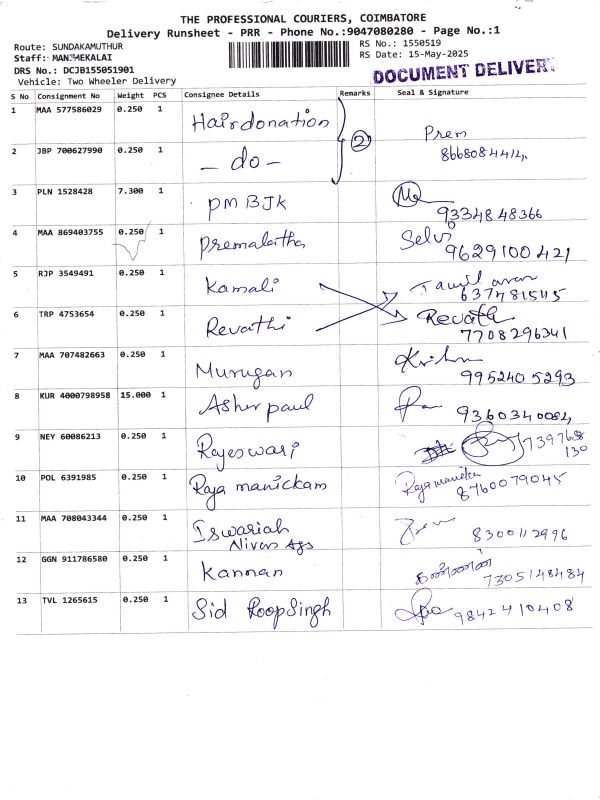 THE PROFESSIONAL COURIERS, COIMBATORE
Delivery Runsheet - PRR - Phone No.:9047080280 - Page No.:1
Route: SUNDAKAMUTHUR
RS No.: 1550519
Staff: MANIMEKALAI
RS Date: 15-May-2025
DRS No.: DCJB155051901
DOCUMENT DELIVERY
Vehicle: Two Wheeler Delivery
S No Consignment No Weight PCS Consignee Details Remarks Seal & Signature
1 MAA 577586029 0.250 1 Hairdonation
2 Prem
8668084414
2 JBP 700627990 0.250 1 - do -
3 PLN 1528428 7.300 1 PMBJK
9334848366
4 MAA 869403755 0.250 1 Premalatha Selvi
9629100421
5 RJP 3549491 0.250 1 Kamali
6 TRP 4753654 0.250 1 Revathi
7708296341
7 MAA 707482663 0.250 1 Murugan
9952405293
8 KUR 4000798958 15.000 1 Asherpaul
9360340084
9 NEY 60086213 0.250 1 Rajeswari
10 POL 6391985 0.250 1 Raja manickam Rajamanickam
8760079045
11 MAA 708043344 0.250 1 Iswariah
8300112996
12 GGN 911786580 0.250 1 Kannan கண்ணன்
7305148484
13 TVL 1265615 0.250 1 Sid RoopSingh
9842410408